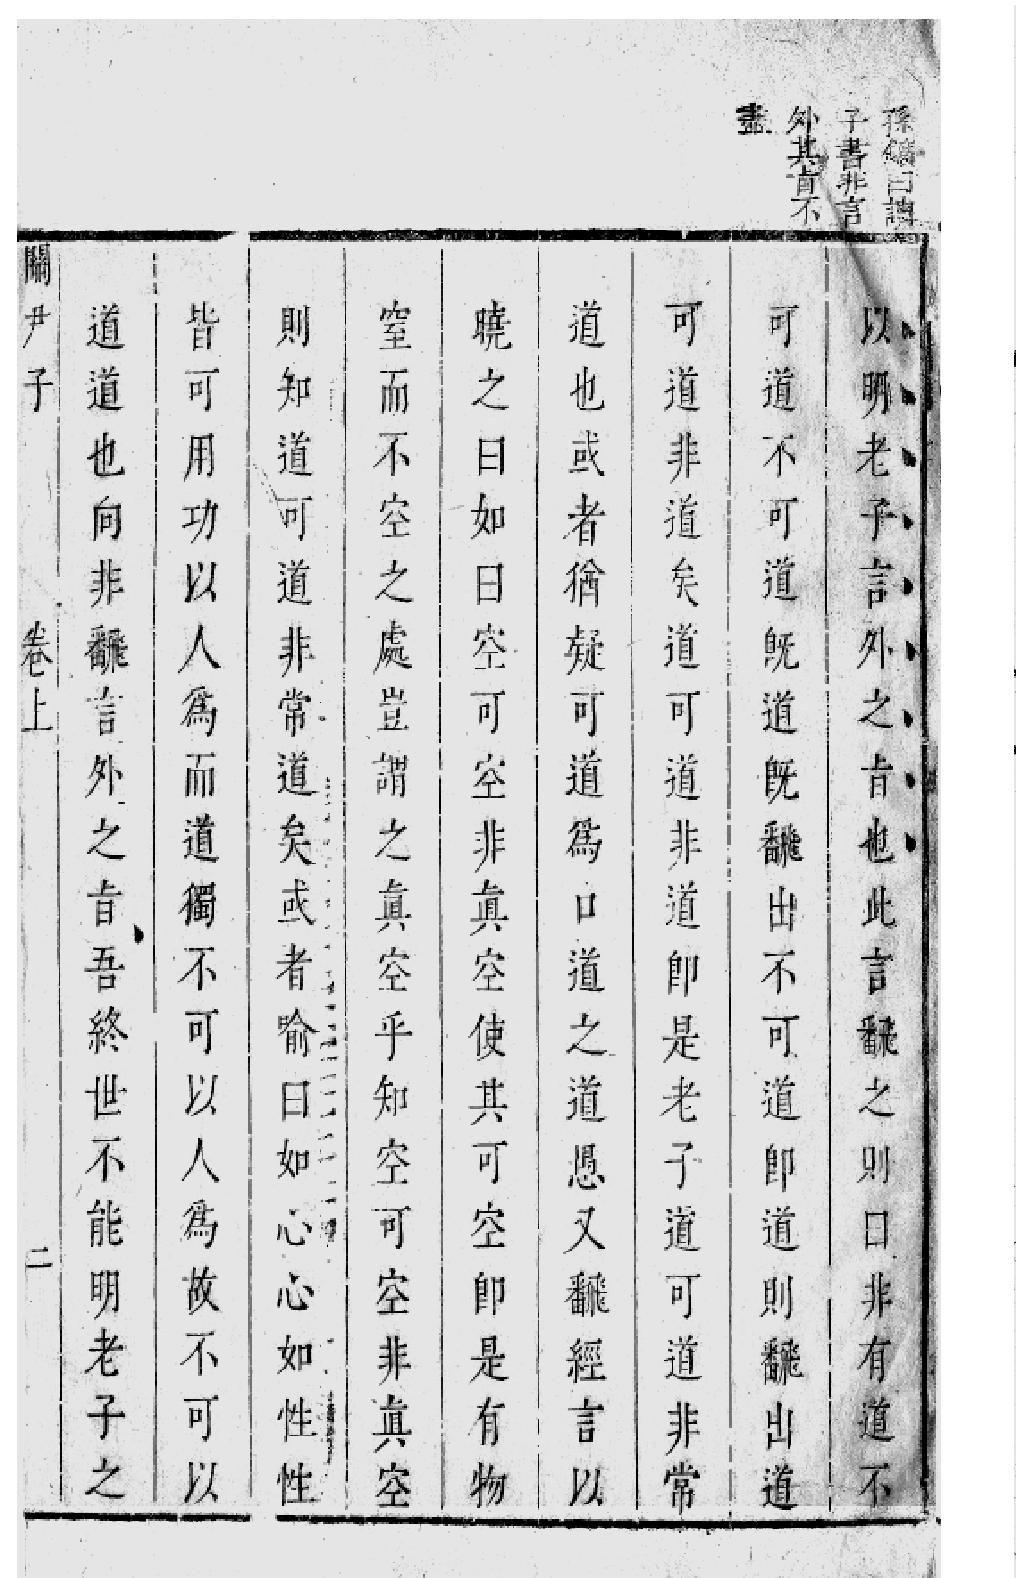 孫鑛曰讀
子書非言
外其旨不
盡
以明老子言外之旨也此言飜之則曰非有道不
可道不可道既道既飜出不可道卽道則飜出道
可道非道矣道可道非道卽是老子道可道非常
道也或者猶疑可道爲口道之道愚又飜經言以
曉之曰如曰空可空非眞空使其可空卽是有物
窒而不空之處豈謂之眞空乎知空可空非眞空
則知道可道非常道矣或者喻曰如心心如性性
皆可用功以人爲而道獨不可以人爲故不可以
道道也向非飜言外之旨吾終世不能明老子之
關尹子 卷上 二